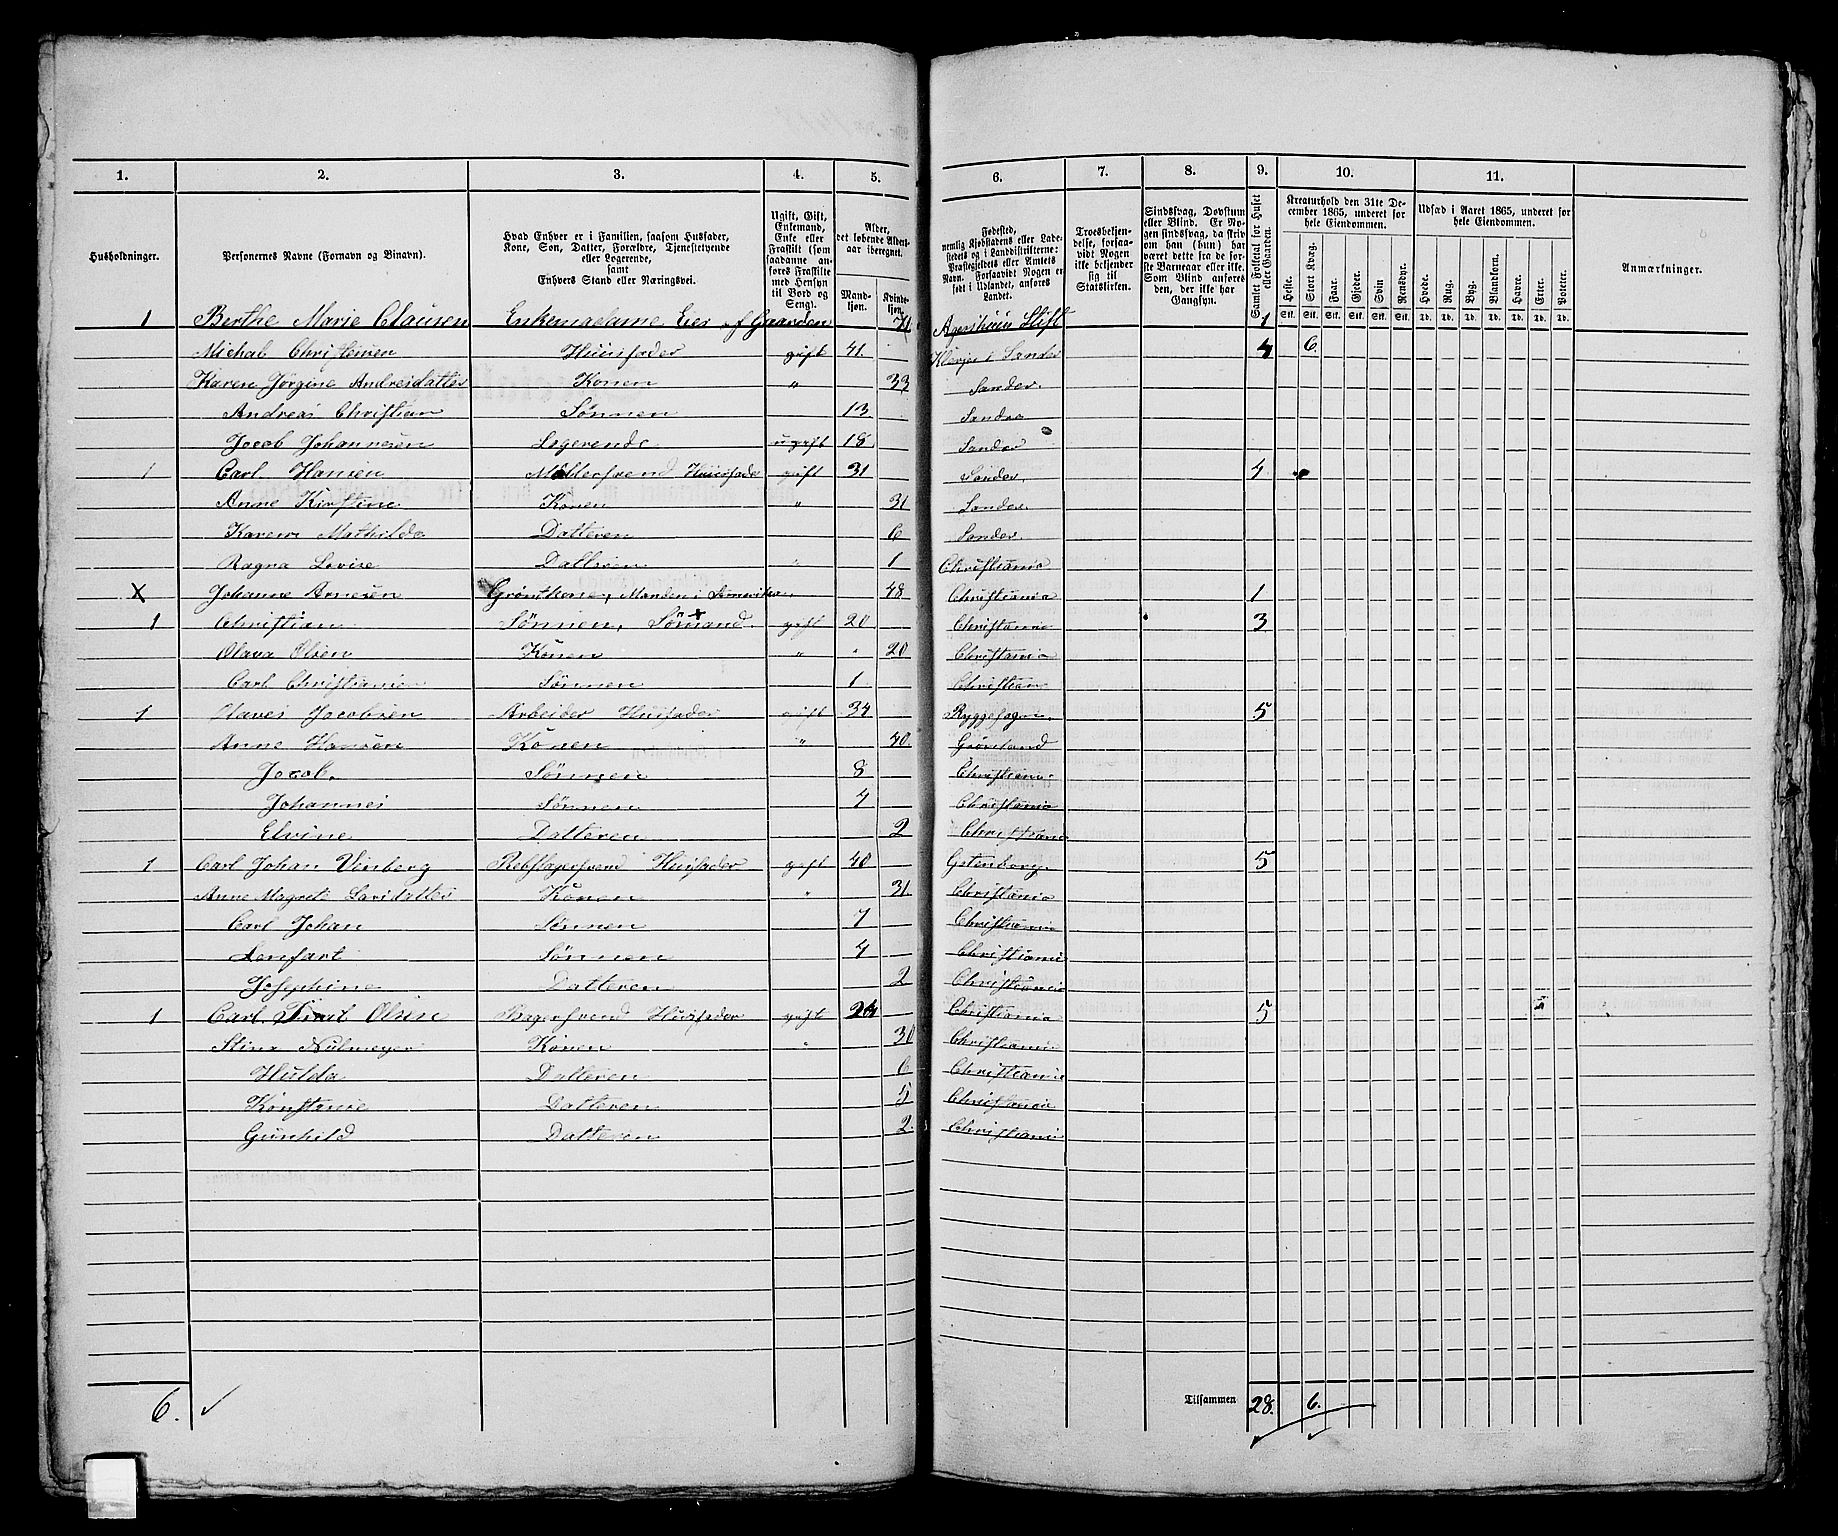 1. 2. 3. 4. 5. 6. 7. 8. 9. 10. 11.
Husholdninger.
Personernes Navne (Fornavn og Binavn).
Hvad Enhver er i Familien, saasom Husfader, Kone, Søn, Datter, Forældre, Tjenestetyende eller Logerende, samt Enhvers Stand eller Næringsvei.
Ugift, Gift, Enkemand, Enke eller Fraskilt (som saadanne anføres Fraskilte med Hensyn til Bord og Seng).
Alder, det løbende Aldersaar iberegnet.
Mandkjøn. Kvindekjøn.
Fødested, nemlig Kjøbstadens eller Ladestedets og i Landdistrikterne: Præstegjeldets eller Amtets Navn. Forsaavidt Nogen er født i Udlandet, anføres Landet.
Troesbekjendelse, forsaavidt Nogen ikke bekjender sig til Statskirken.
Sindssvag, Døvstum eller Blind. Er Nogen sindssvag, da skrives om han (hun) har været dette fra de første Barneaar eller ikke. Som Blind anføres den, der ikke har Gangsyn.
Samlet Folketal for Huset eller Gaarden.
Kreaturhold den 31te December 1865, underet for hele Eiendommen.
Udsæd i Aaret 1865, underet for hele Eiendommen.
Heste. Stort Kvæg. Faar. Gjeder. Svin Rensdyr. Hvede. Rug. Byg. Blandkorn. Havre. Erter. Poteter.
Stk. Stk. Stk. Stk. Stk. Stk. Td. Td. Td. Td. Td. Td. Td.
Anmærkninger.
1 Berthe Marie Clausen Enkemadame Eier af Gaarden 71 Agershuus Stift 1
Michal Christensen Huusfader gift 41. Sander 4 6.
Karen Jørgine Andreidatter Konen " 33 Sander
Andreas Christian Sønnen 13 Sander
Jocob Johannesen Logerende ugift 18 Sander
1 Carl Hansen Møllersvend Huusfader gift 31 Sander 4
Anne Kirstine Konen " 31 Sander
Karen Mathilde Datteren 6 Sander
Ragna Lovise Datteren " 1 Christiania
X Johanne Arnesen Grønthone, Manden i Amerika 48 Christiania 1
1 Christian Sønnen, Sømand gift 20 Christiania 3
Olava Olsen Konen " " 20 Christiania
Carl Christiansen Sønnen 1 Christian
1 Olaves Jocobsen Arbeider Huusfader gift 34 Ryggesogn 5
Anne Hansen Konen " 40. Grønland
Jocob. Sønnen 8 Christiania
Johannes Sønnen 4 Christiania
Elvine Datteren 2 Christiania
1 Carl Johan Vinberg Rebslagersvend Huusfader gift 40 Gotenborg 5
Anne Magrete Larsdatter Konen " 31. Christiania
Carl Johan Sønnen 7 Christiania
Lenfart Sønnen 4 Christiania
Josephine Datteren 2 Christiania
1 Carl Olsen Bagersvend Huusfader gift 24 Christiania 5
Stina Konen " 30 Christiania
Hulda Datteren 6 Christiania
Konstanse Datteren 5 Christiania
Gunhild Datteren 2. Christiani
6. Tilsammen 28. 6.